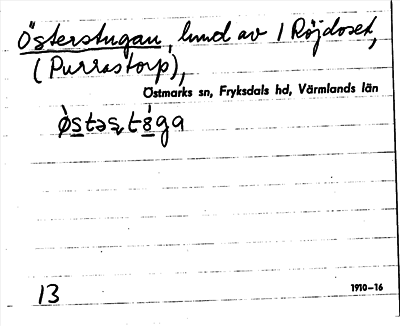 Österstugan, lmd av 1 Röjdoset,
(Purrastorp),
Östmarks sn, Fryksdals hd, Värmlands län
13
1910–16